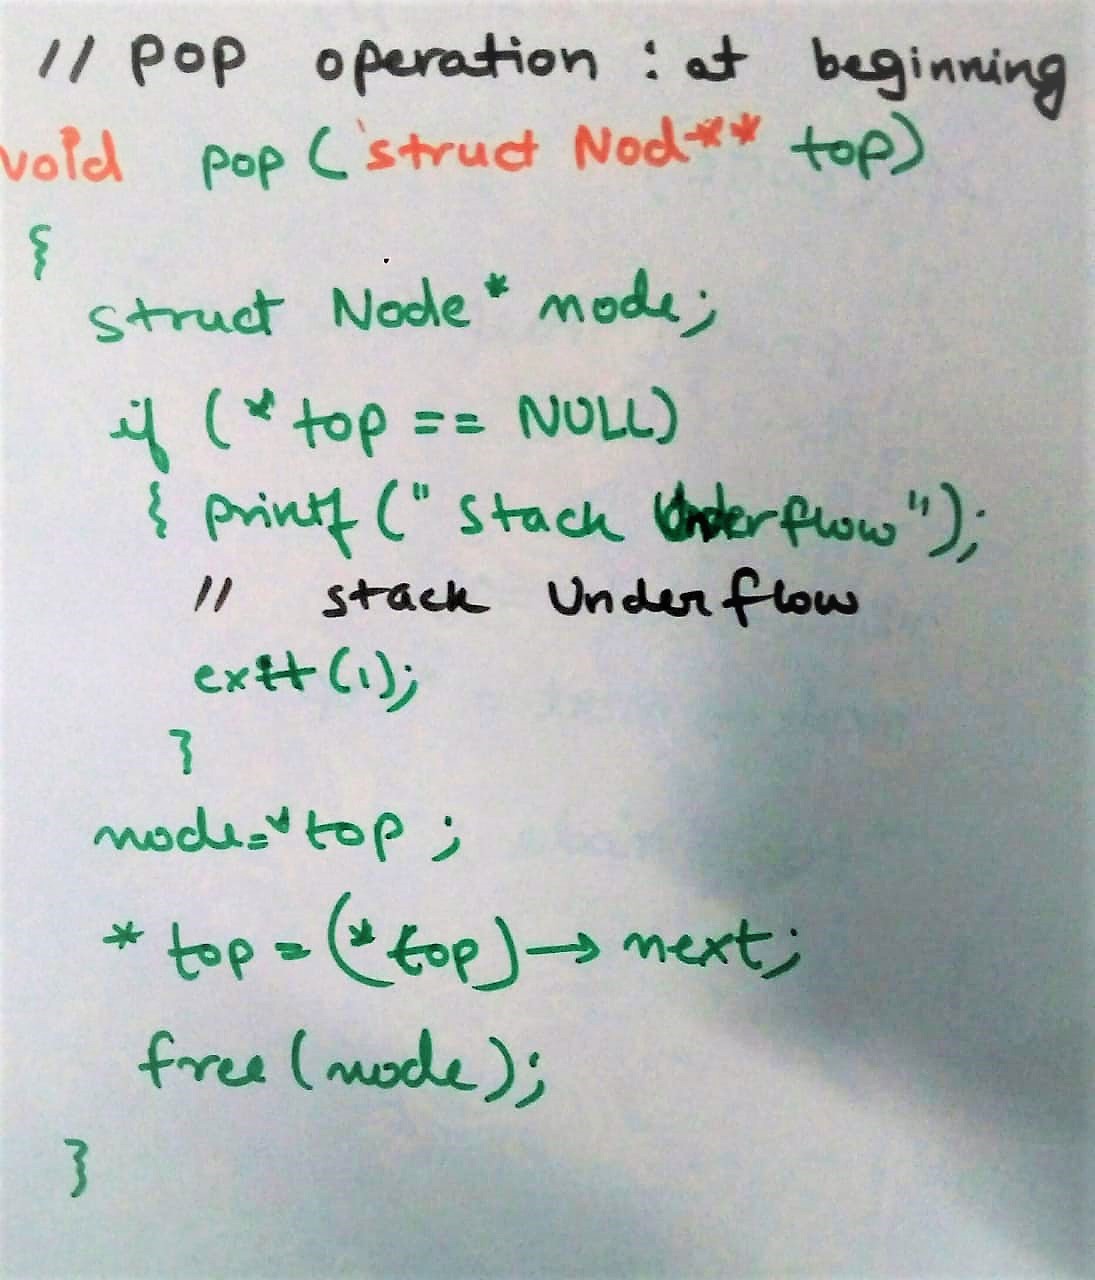 // pop operation : at beginning
void pop ( struct Nod** top)
{
struct Node* node;
if (*top == NULL)
{ printf (" Stack Underflow");
// stack Underflow
exit (1);
}
node=*top ;
* top = (*top)→ next;
free (node);
}